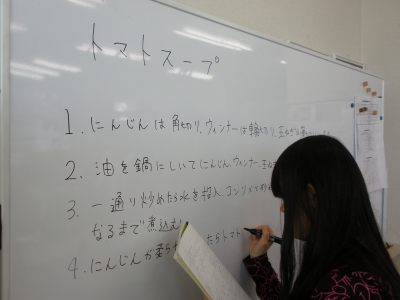 トマトスープ
1. にんじんは角切り、ウィンナーは輪切り、玉ねぎ
2. 油を鍋にしいてにんじん、ウィンナー、玉ね
3. 一通り炒めたら水を投入 コンソメで
なるまで煮込む
4. にんじんが柔ら たらトマト